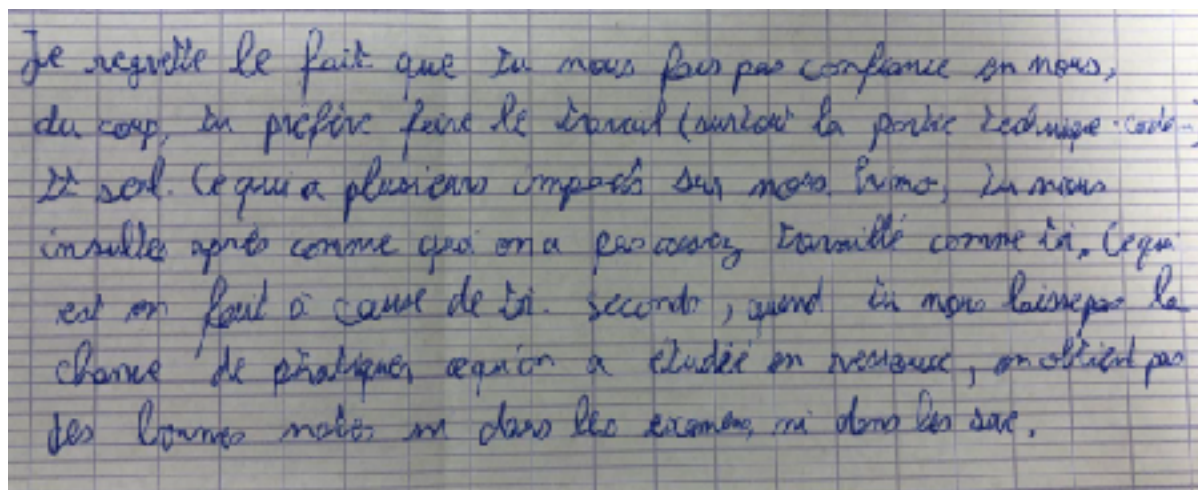 Je regrette le fait que tu nous fais pas confiance en nous,
du coup, tu préfère faire le travail (surtout la partie technique-code-)
tt seul. Ce qui a plusieurs impacts sur nous. Primo, tu nous
insultes après comme quoi on a pas assez travaillé comme toi. Ce qui
est en fait à cause de toi. secondo, quand tu nous laisse pas la
chance de pratiquer ce qu'on a étudié en ressource, on obtient pas
des bonnes notes ni dans les examens, ni dans les sae.